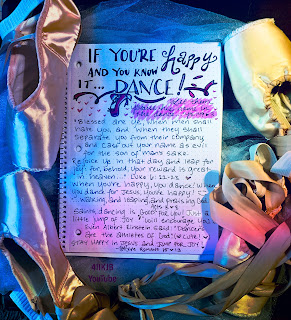 IF YOU'RE Happy
AND YOU KNOW
IT... DANCE!
"Blessed are ye, when men shall
hate you, and when they shall
separate you from their company,
and cast out your name as evil
for the son of man's sake.
Rejoice ye in that day and leap for
joy: for, behold, your reward is great
in heaven..." Luke 6:22-23
When you're happy, you dance! When
you dance for Jesus, you're happy!
"Walking, and leaping, and praising God."
Acts 3:8
Saints, dancing is good for you! Just a
little jump of joy will encourage you.
Even Albert Einstein said: "Dancers
are the athletes of God."
STAY HAPPY IN JESUS and JUMP FOR JOY!
Romans 15:13
YouTube